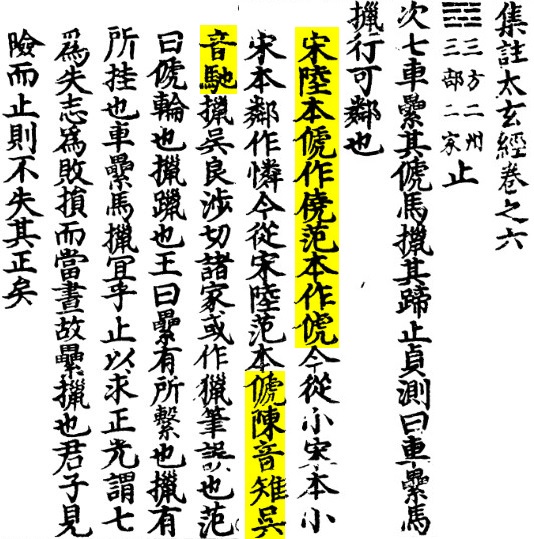 集註太玄經卷之六
三方二州
三部二家
止
次七車纍其傂馬擸其蹄止貞測曰車纍馬
擸行可鄰也
宋陸本傂作傹范本作俿今從小宋本小
宋本鄰作憐今從宋陸范本傂陳音雉吳
音馳擸吳良涉切諸家或作獵筆誤也范
曰傂輪也擸躐也王曰纍有所繫也擸有
所挂也車纍馬擸冝乎止以求正光謂七
爲失志爲敗損而當晝故纍擸也君子見
險而止則不失其正矣